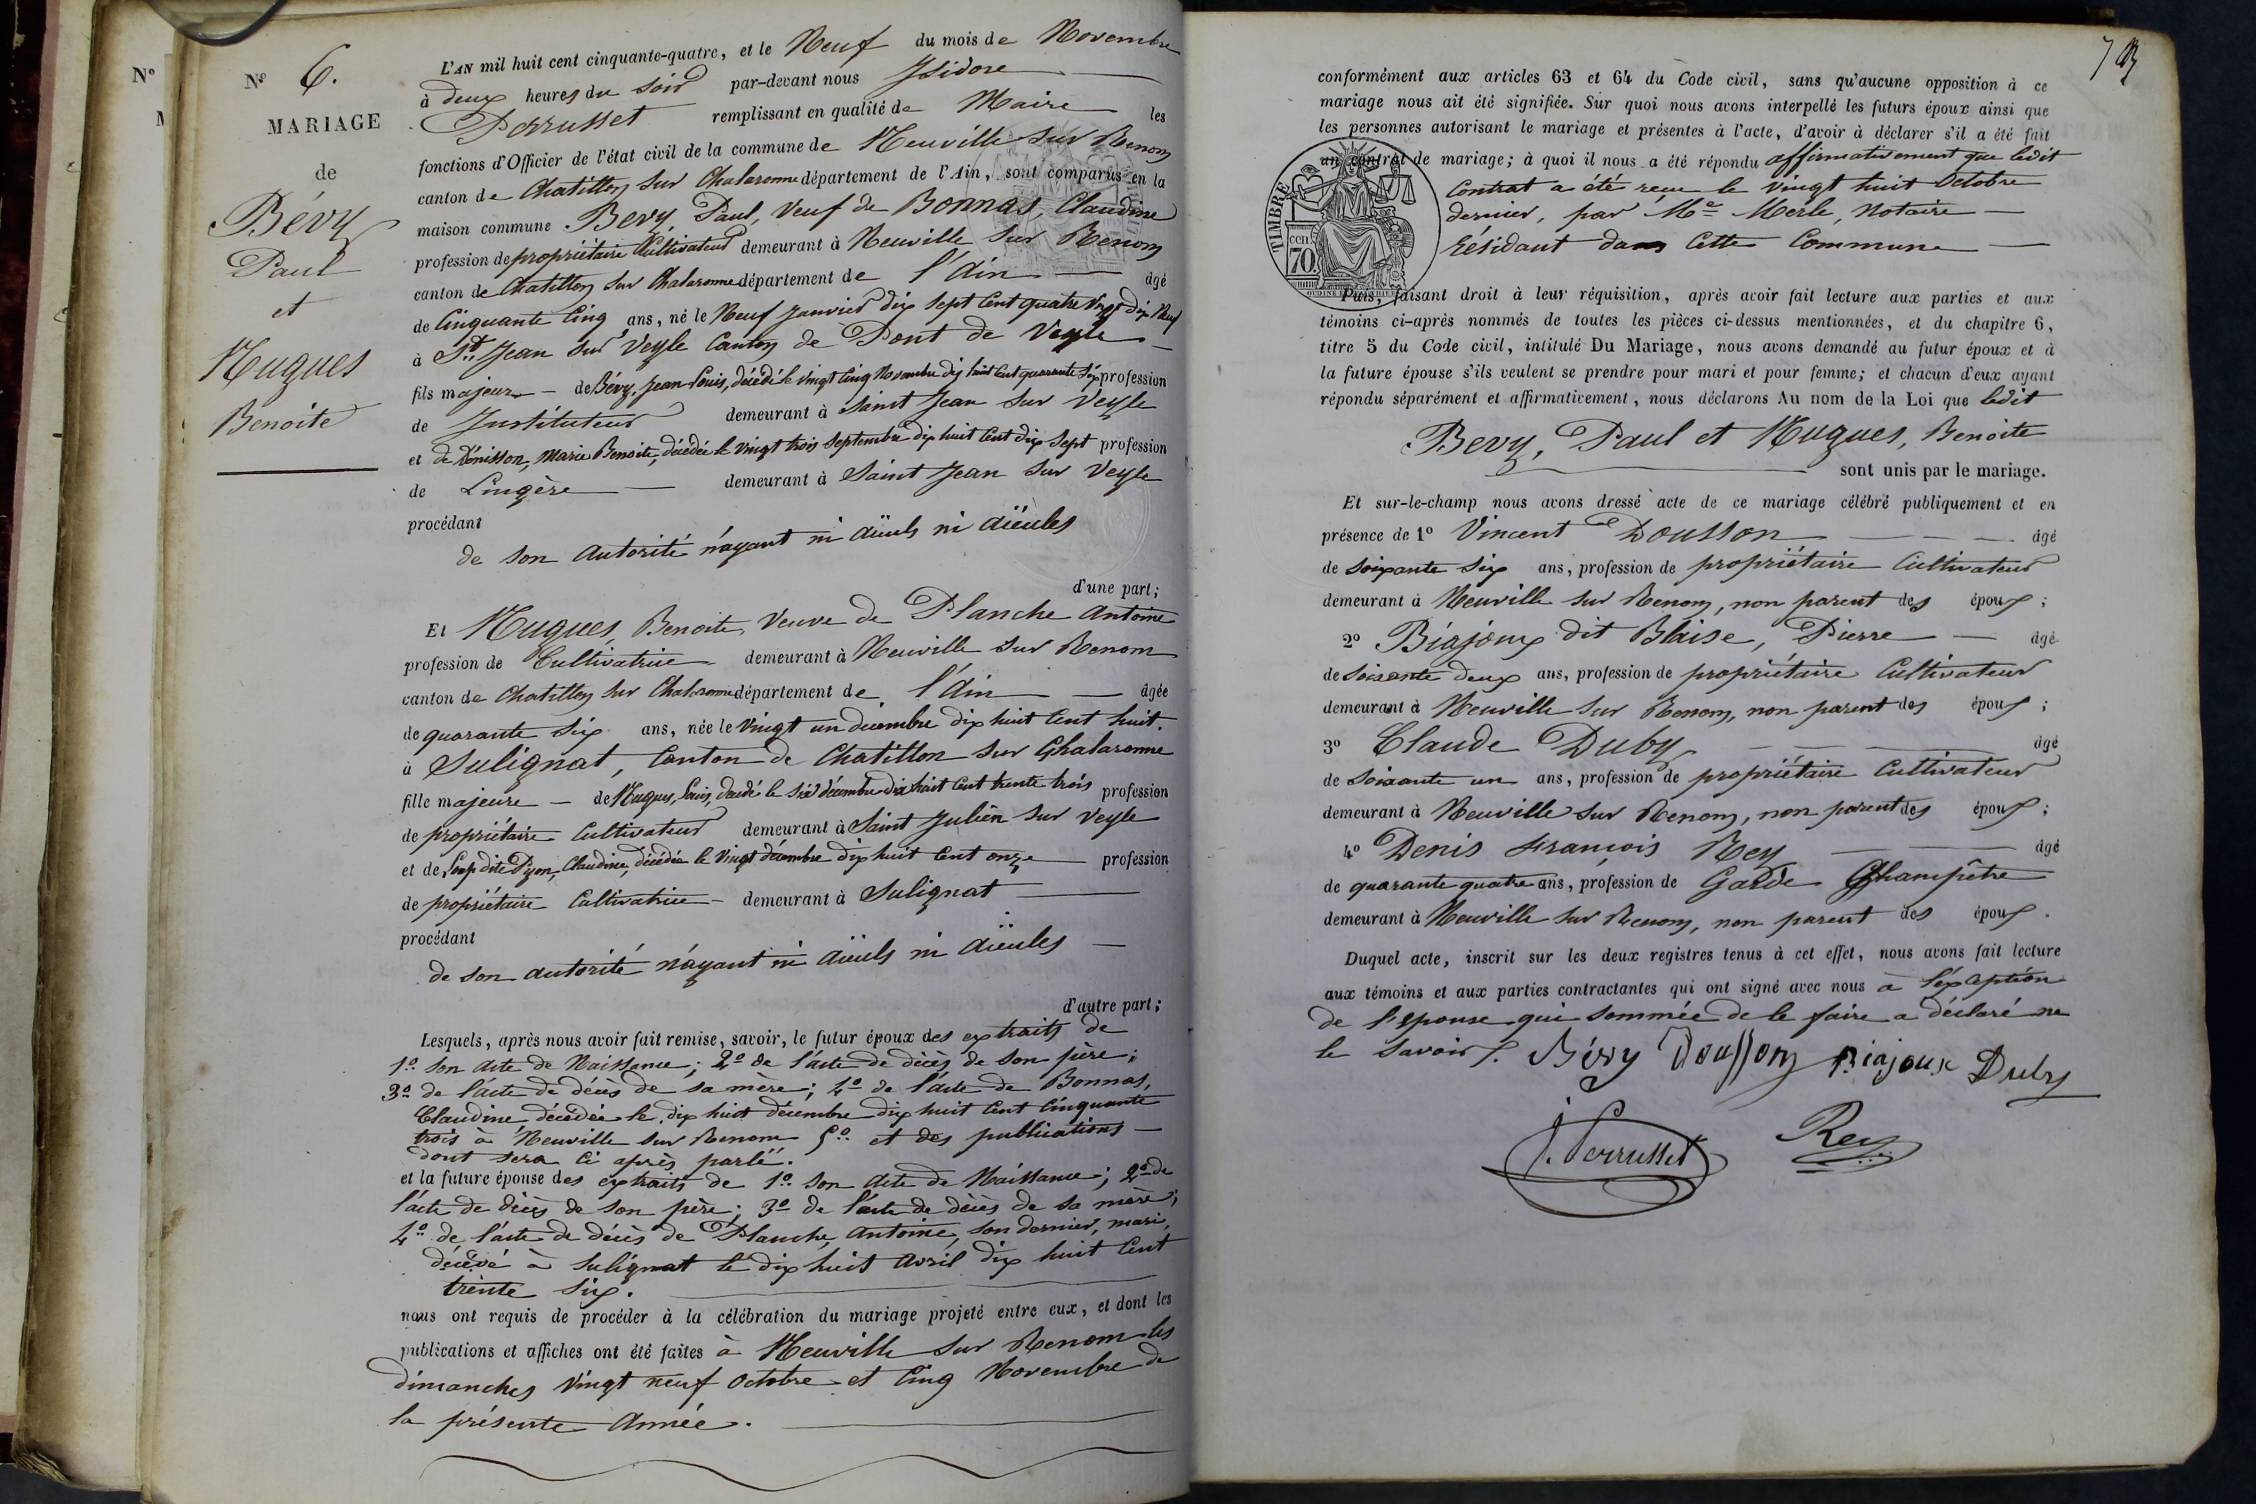 Nº
Nº 6.
MARIAGE
de
Bévy
Paul
et
Hugues
Benoite
L'AN mil huit cent cinquante-quatre, et le Neuf du mois de Novembre
à deux heures du soir par-devant nous Isidore
Perrusset remplissant en qualité de Maire les
fonctions d'Officier de l'état civil de la commune de Neuville sur Renom
canton de Chatillon sur Chalaronne département de l'Ain, sont comparus en la
maison commune Bevy, Paul, Veuf de Bonnas, Claudine
profession de propriétaire Cultivateur demeurant à Neuville sur Renom
canton de Chatillon sur Chalaronne département de l'Ain âgé
de Cinquante Cinq ans, né le Neuf Janvier dix sept Cent quatre vingt dix Neuf
à St. Jean sur Veyle Canton de Pont de Veyle
fils majeur de Bévy, Jean Louis, décédé le vingt Cinq Novembre dix huit Cent quarante Six profession
de Instituteur demeurant à Saint Jean sur Veyle
et de Dénisson, Marie Benoite, décédée le vingt trois Septembre dix huit Cent dix Sept profession
de Lingère demeurant à Saint Jean sur Veyle
procédant
de son autorité n'ayant ni aïeuls ni aïeules
d'une part;
Et Hugues, Benoite, Veuve de Planche Antoine
profession de Cultivatrice demeurant à Neuville sur Renom
canton de Chatillon sur Chalaronne département de l'Ain âgée
de quarante Six ans, née le Vingt un décembre dix huit Cent huit.
à Sulignat, Canton de Chatillon sur Chalaronne
fille majeure de Hugues, Louis, décédé le Six décembre dix huit Cent trente trois profession
de propriétaire Cultivateur demeurant à Saint Julien sur Veyle
et de Loup dite Pizon, Claudine, décédée le Vingt décembre dix huit Cent onze profession
de propriétaire Cultivatrice demeurant à Sulignat
procédant
de son autorité n'ayant ni aïeuls ni aïeules
d'autre part;
Lesquels, après nous avoir fait remise, savoir, le futur époux des extraits de
1º son acte de Naissance; 2º de l'acte de décès de son père;
3º de l'acte de décès de sa mère; 4º de l'acte de Bonnas,
Claudine, décédée le dix huit décembre dix huit Cent Cinquante
trois à Neuville sur Renom 5º et des publications
dont sera ci après parlé.
et la future épouse des extraits de 1º son acte de Naissance; 2º de
l'acte de décès de son père; 3º de l'acte de décès de sa mère;
4º de l'acte de décès de Planche, Antoine, son dernier, mari,
décédé à Sulignat le dix huit Avril dix huit Cent
trente Six.
nous ont requis de procéder à la célébration du mariage projeté entre eux, et dont les
publications et affiches ont été faites à Neuville sur Renom les
dimanches Vingt neuf Octobre et Cinq Novembre de
la présente Année.
conformément aux articles 63 et 64 du Code civil, sans qu'aucune opposition à ce
mariage nous ait été signifiée. Sur quoi nous avons interpellé les futurs époux ainsi que
les personnes autorisant le mariage et présentes à l'acte, d'avoir à déclarer s'il a été fait
un contrat de mariage; à quoi il nous a été répondu affirmativement que ledit
Contrat a été reçu le Vingt huit Octobre
dernier, par Me Merle, Notaire
Résidant dans Cette Commune
TIMBRE
cen.
70.
Puis, faisant droit à leur réquisition, après avoir fait lecture aux parties et aux
témoins ci-après nommés de toutes les pièces ci-dessus mentionnées, et du chapitre 6,
titre 5 du Code civil, intitulé Du Mariage, nous avons demandé au futur époux et à
la future épouse s'ils veulent se prendre pour mari et pour femme; et chacun d'eux ayant
répondu séparément et affirmativement, nous déclarons Au nom de la Loi que ledit
Bevy, Paul et Hugues, Benoite
sont unis par le mariage.
Et sur-le-champ nous avons dressé acte de ce mariage célébré publiquement et en
présence de 1º Vincent Dousson âgé
de soixante six ans, profession de propriétaire Cultivateur
demeurant à Neuville sur Renom, non parent des époux;
2º Biajoux dit Blaise, Pierre âgé
de Soixante deux ans, profession de propriétaire Cultivateur
demeurant à Neuville sur Renom, non parent des époux;
3º Claude Duby âgé
de Soixante un ans, profession de propriétaire Cultivateur
demeurant à Neuville sur Renom, non parent des époux;
4º Denis François Rey âgé
de quarante quatre ans, profession de Garde Champêtre
demeurant à Neuville sur Renom, non parent des époux.
Duquel acte, inscrit sur les deux registres tenus à cet effet, nous avons fait lecture
aux témoins et aux parties contractantes qui ont signé avec nous à l'éxaption
de l'épouse qui sommée de le faire a déclaré ne
le savoir. Bévy Dousson Biajoux Duby
J. Perrusset Rey